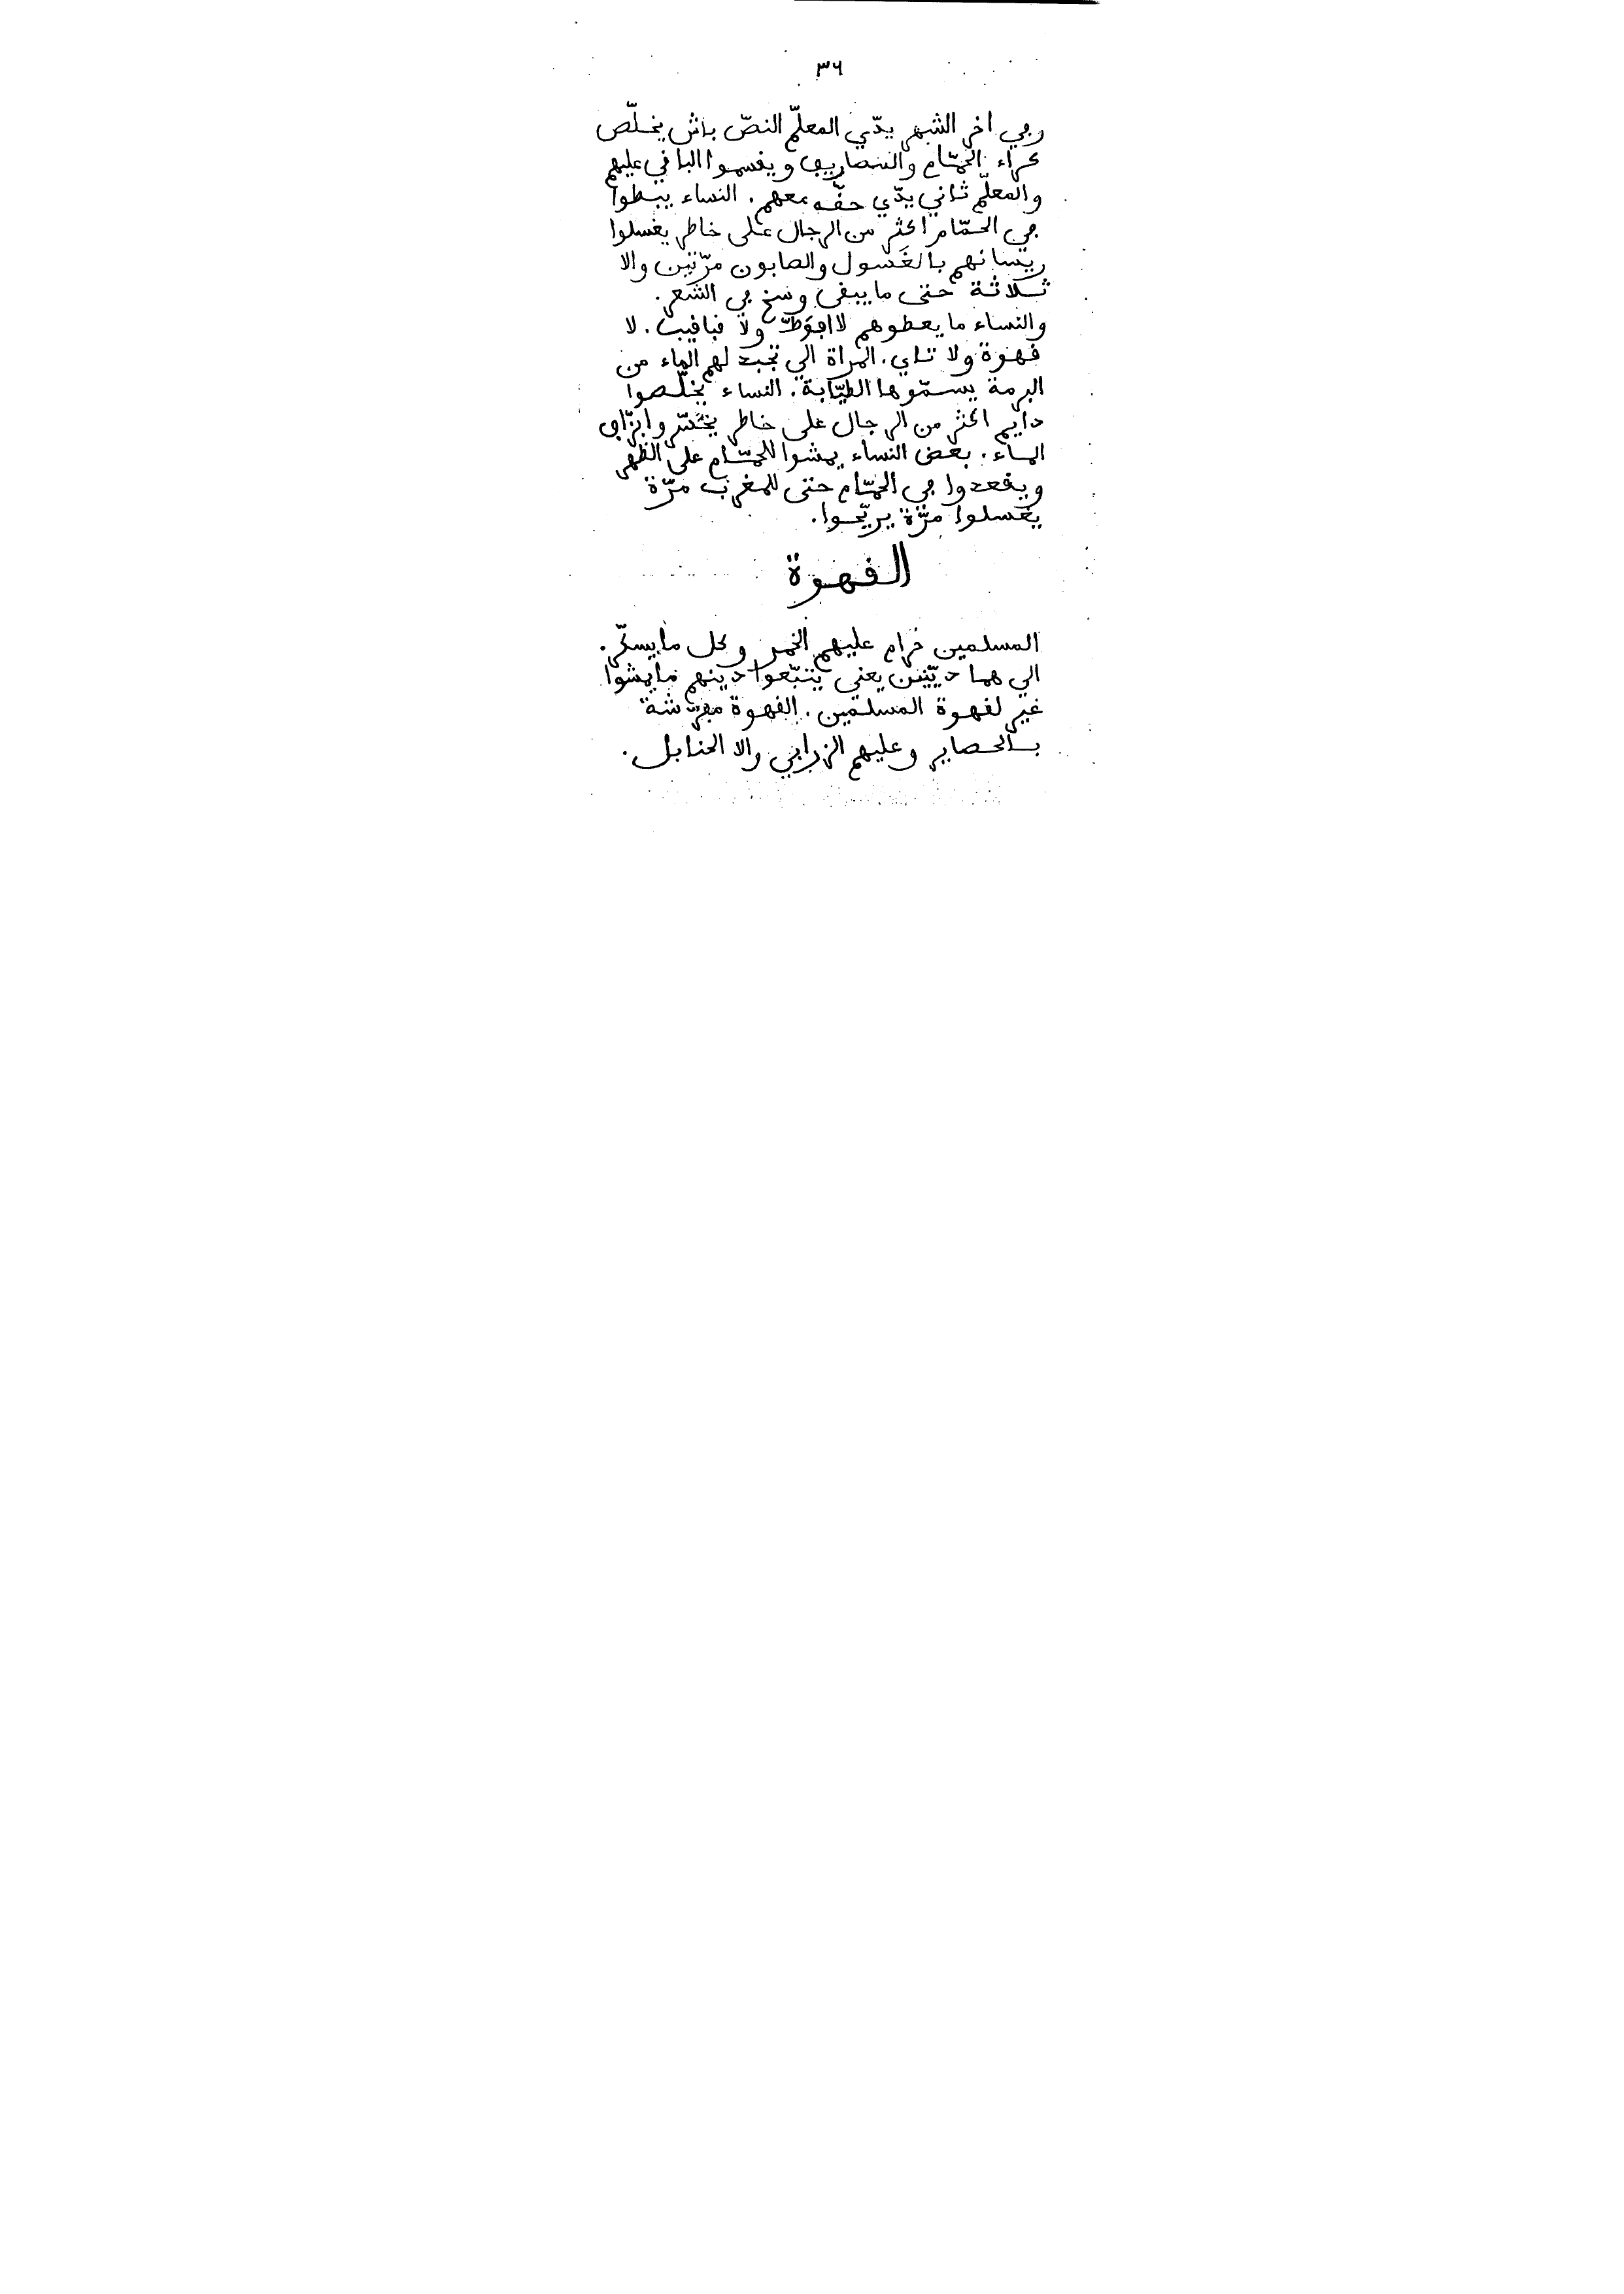 ٣٦
وڢي اخر الشهر يدّي المعلّم النصّ باش يخلّص
كراء الحمّام والمصاريڢ ويڧسموا الباڧي عليهم
والمعلّم ثاني يدّي حڧّه معهم. النساء يبطوا
ڢي الحمّام اكثر من الرجال على خاطر يغسلوا
ريسانهم بالغَسول والصابون مرّتين والا
ثلاثة حتى ما يبڧى وسخ ڢي الشعر.
والنساء ما يعطوهم لا اڢوَط ولا ڧباڧيب. لا
ڧهوة ولا تاي. المراة الي تجبد لهم الماء من
البرمة يسمّوها الطيّابة. النساء يخلّصوا
دايم اكثر من الرجال على خاطر يخسّروا بزّاڢ
الماء. بعض النساء يمشوا للحمّام على الظهر
ويڧعدوا ڢي الحمّام حتى للمغرب مرّة
يغسلوا مرّة يريّحوا.
الڧهوة
المسلمين حرام عليهم الخمر وكل ما يسكّر.
الي هما ديّنين يعني يتبّعوا دينهم ما يمشوا
غير لڧهوة المسلمين. الڧهوة مڢرّشة
بالحصاير وعليهم الزرابي والا الحنابل.